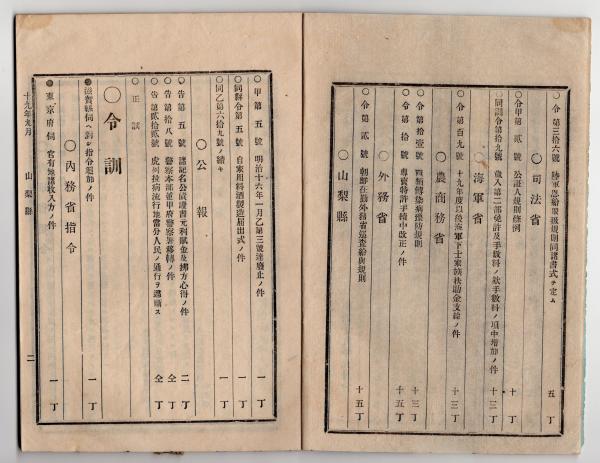 令第三拾六號 陸軍恩給取扱規則同諸書式ヲ定ム 五丁
〇司法省
〇令甲第貳號 公証人規則施例 十丁
〇同訓令第拾九號 歳入第二部免許及手數料ノ款手數料ノ項中増加ノ件 十三丁
〇海軍省
〇令第百九號 十九年度以後海軍下士家族扶助金支給ノ件 十三丁
〇農商務省
〇令第拾壹號 獸類傳染病豫防規則 十三丁
〇令第拾號 專賣特許手續中改正ノ件 十五丁
〇外務省
〇令第貳號 朝鮮在勤外務省巡査給與規則 十五丁
〇山梨縣
〇甲第五號 明治十六年一月乙第三號達廢止ノ件 一丁
〇同縣令第五號 自家用料酒製造屆出式ノ件 一丁
〇同乙第六拾九號ノ續キ 一丁
〇公報
告第五號 諸記名公債證書元利賦金及拂方心得ノ件 二丁
告第拾八號 警察本部並甲府警察署移轉ノ件 仝丁
告第貳拾貳號 虎列拉病流行地當分人民ノ通行ヲ遮斷ス 仝丁
〇正誤
〇令訓
滋賀縣伺ヘ對シ指令追加ノ件 一丁
〇內務省指令
東京府伺 官有地諸收入方ノ件 一丁
十九年九月 山梨縣 二